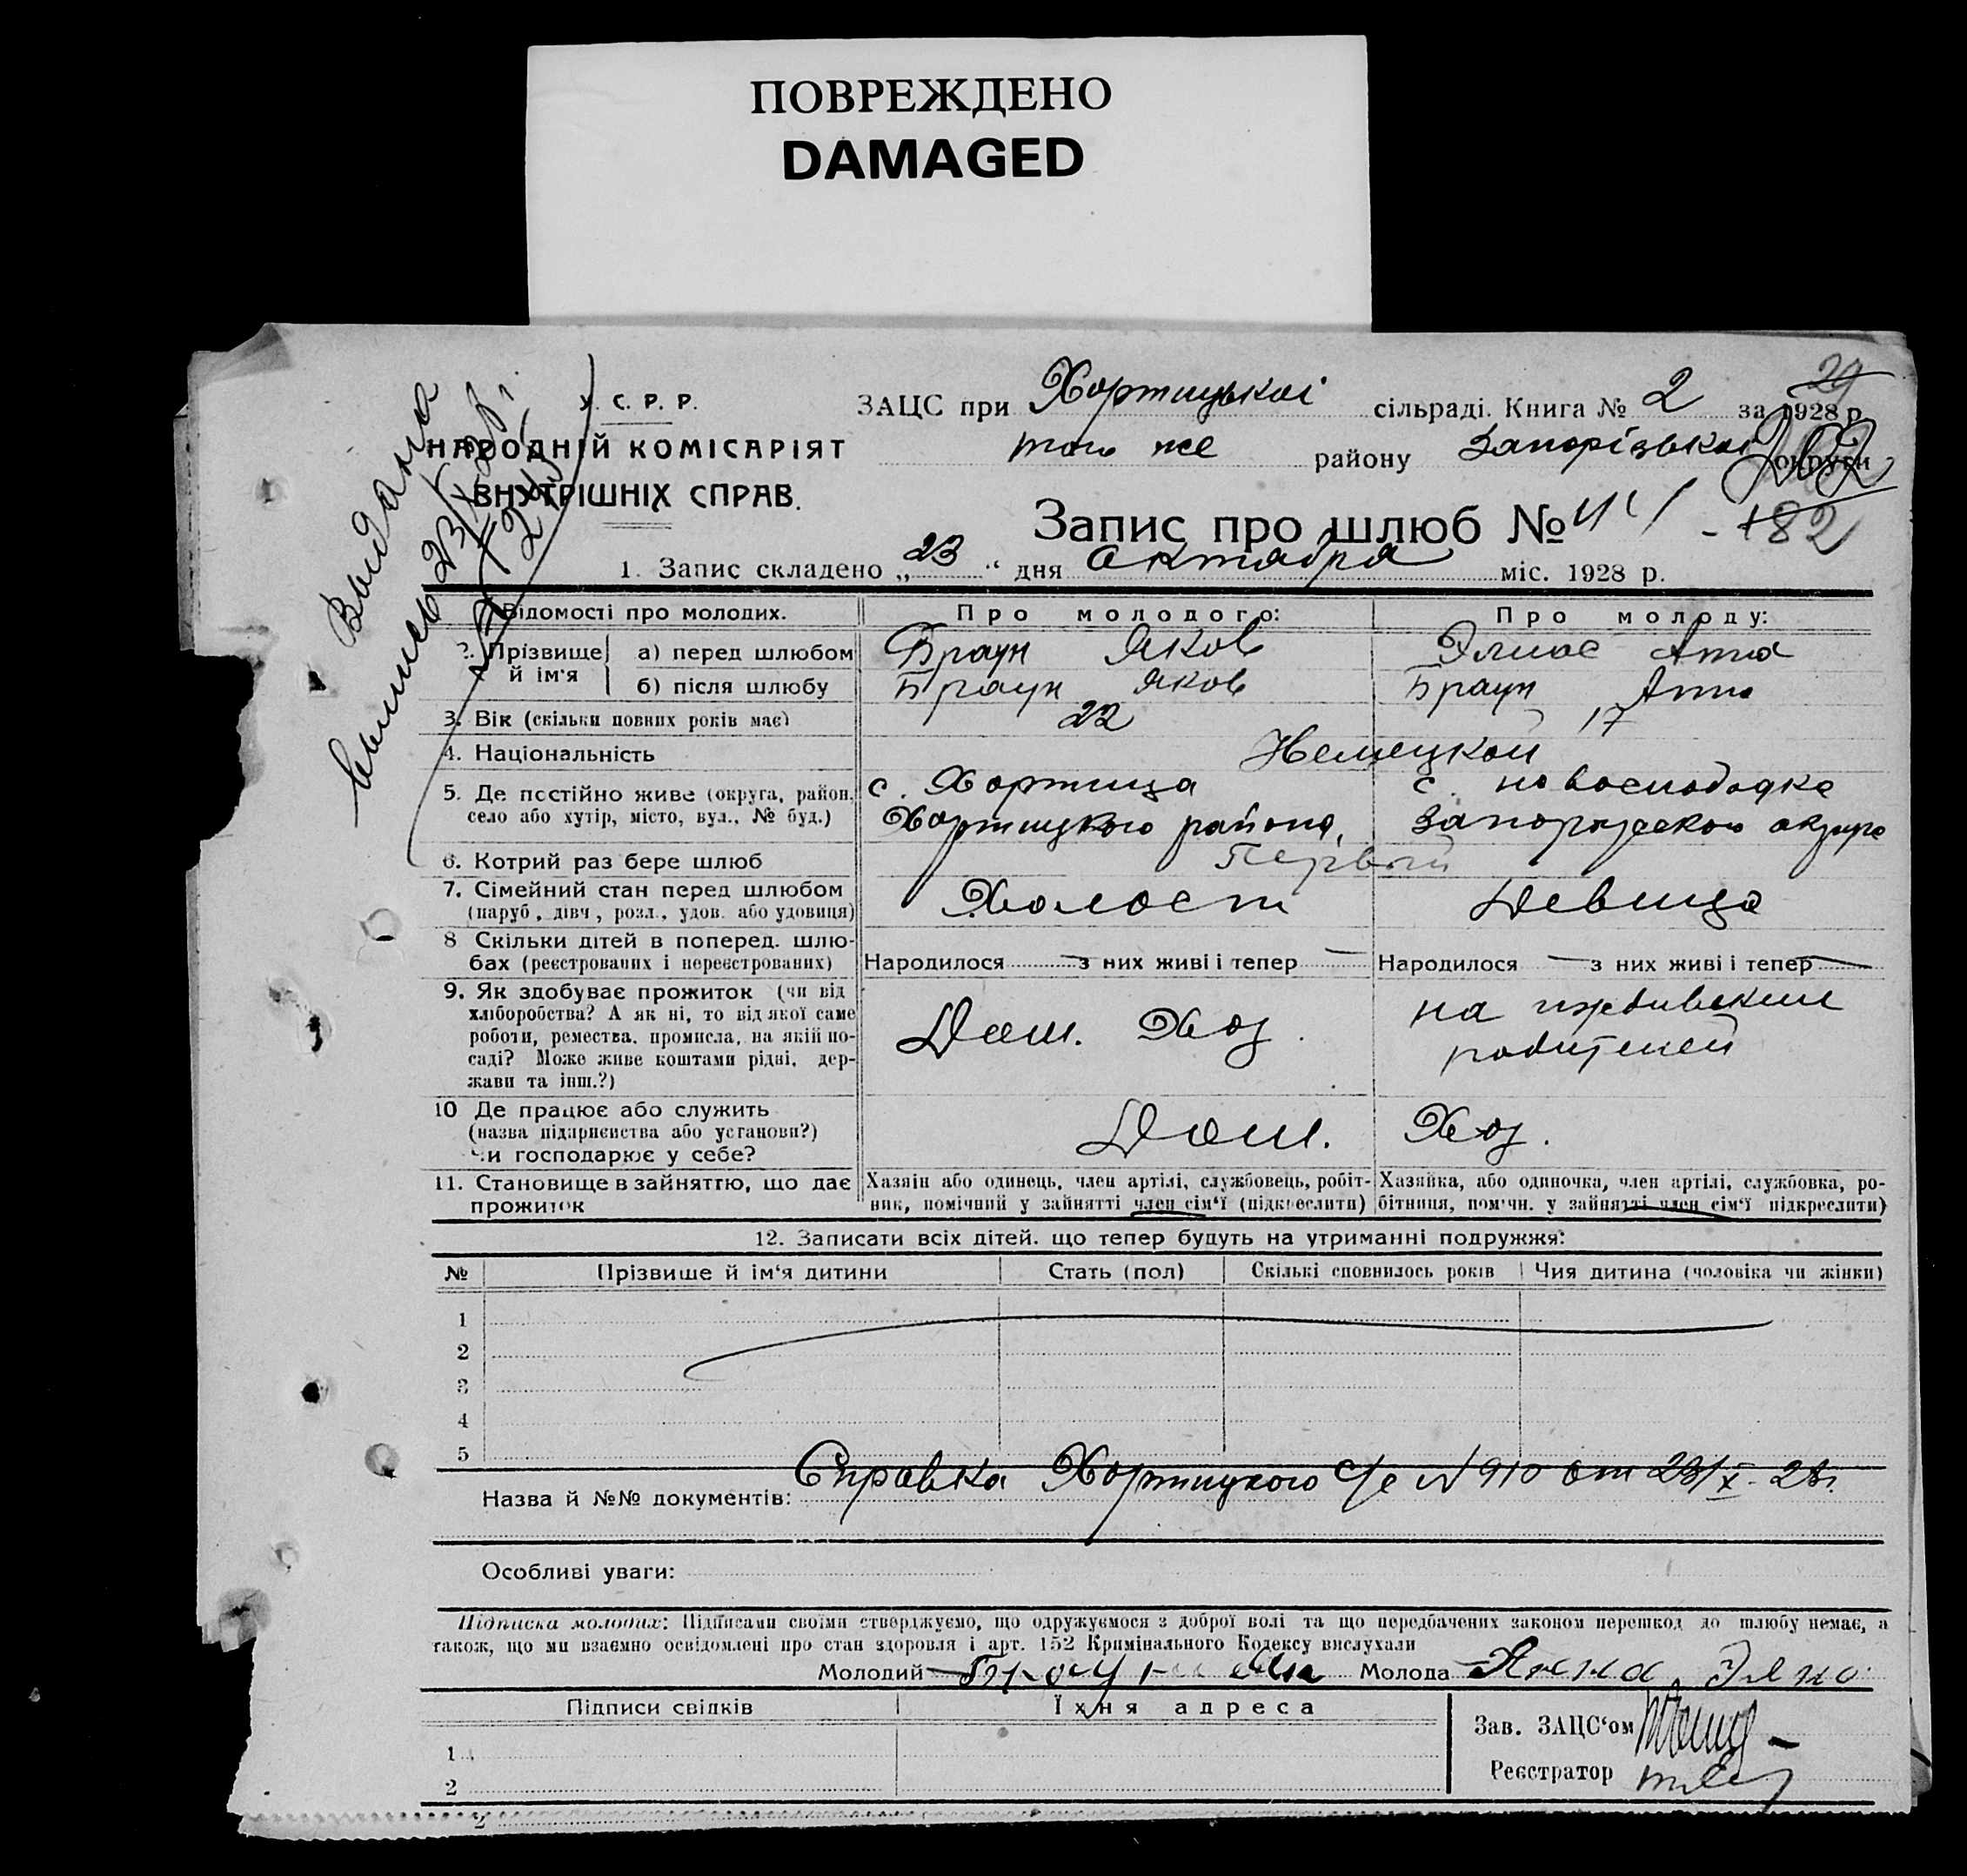 ПОВРЕЖДЕНО
DAMAGED
У. С. Р. Р.
НАРОДНІЙ КОМІСАРІЯТ
ВНУТРІШНІХ СПРАВ.
Выдана
ЗАЦС при Хортицькоі сільраді. Книга № 2 за 1928 р.
29
того же району Запорізькоі округи
Запис про шлюб №
182
1. Запис складено „23“ дня Октября міс. 1928 р.
Відомості про молодих. Про молодого: Про молоду:
2. Прізвище й ім'я а) перед шлюбом Браун Яков Элиас Анна
б) після шлюбу Браун Яков Браун Анна
3. Вік (скільки повних років має) 22 17
4. Національність Немецкой
5. Де постійно живе (округа, район, село або хутір, місто, вул., № буд.) с. Хортица с. новослободка
Хортицкого района, Запорожского округа
6. Котрий раз бере шлюб Первый
7. Сімейний стан перед шлюбом Холост Девица
(паруб., дівч., розл., удов. або удовиця)
8 Скільки дітей в поперед. шлюбах (реєстрованих і нереєстрованих) Народилося — з них живі і тепер — Народилося — з них живі і тепер —
9. Як здобуває прожиток (чи від хліборобства? А як ні, то від якої саме роботи, ремества, промисла, на якій посаді? Може живе коштами рідні, держави та інш.?) Дом. Хоз. на иждивении родителей
10 Де працює або служить Дом. Хоз.
(назва підприємства або установи?)
Чи господарює у себе?
11. Становище в зайняттю, що дає прожиток Хазяїн або одинець, член артілі, службовець, робітник, помічний у зайнятті член сім'ї (підкреслити) Хазяйка, або одиночка, член артілі, службовка, робітниця, пом'чн. у зайнятті член сім'ї підкреслити)
12. Записати всіх дітей, що тепер будуть на утриманні подружжя:
№ Прізвище й ім'я дитини Стать (пол) Скількі сповнилось років Чия дитина (чоловіка чи жінки)
1
2
3
4
5
Назва й №№ документів: Справка Хортицкого с/с № 910 от 23/X 28г.
Особливі уваги:
Підписка молодих: Підписами своїми стверджуємо, що одружуємося з доброї волі та що передбачених законом перешкод до шлюбу немає, а
також, що ми взаємно освідомлені про стан здоровля і арт. 152 Кримінального Кодексу вислухали
Молодий Браун Молода Анна
Підписи свідків Їхня адреса
Зав. ЗАЦС'ом
1
Реєстратор
2
2